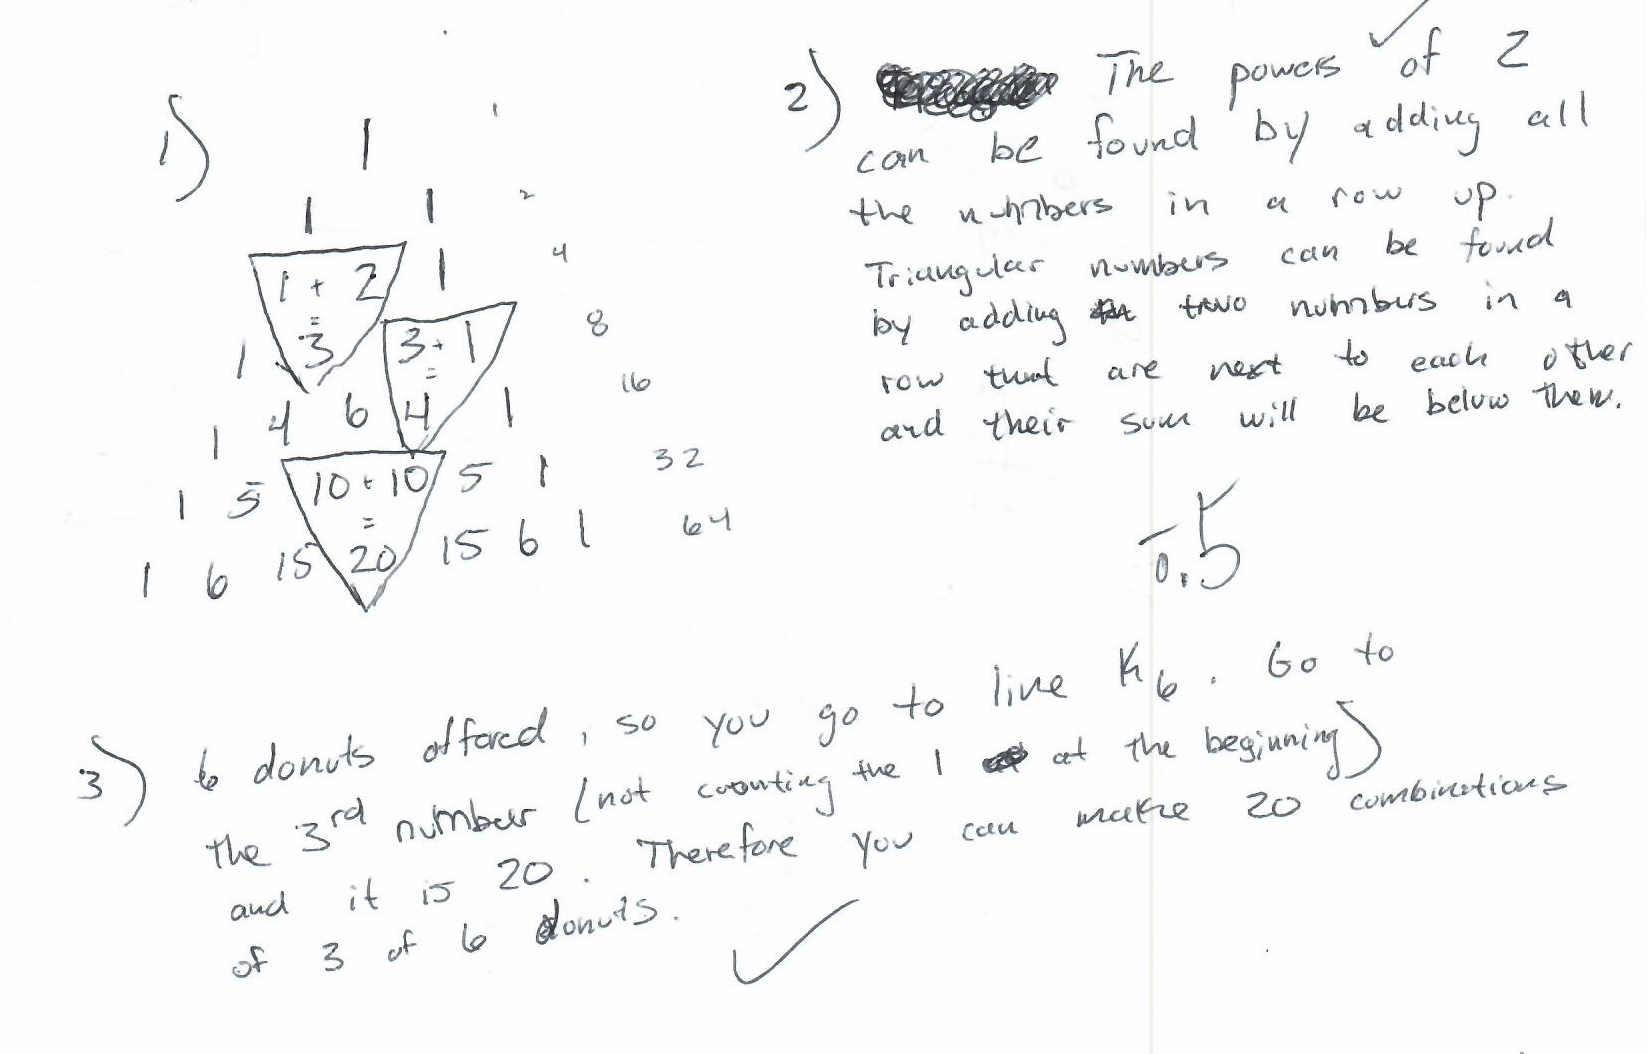 1)
1 1
1 1 2
1 + 2 1 4
=
1 3 3 + 1 8
=
1 4 6 4 1 16
1 5 10 + 10 5 1 32
=
1 6 15 20 15 6 1 64
2) The powers of 2
can be found by adding all
the numbers in a row up.
Triangular numbers can be found
by adding two numbers in a
row that are next to each other
and their sum will be below them.
-0.5
3) 6 donuts offered, so you go to line K6. Go to
the 3rd number (not counting the 1 at the beginning)
and it is 20. Therefore you can make 20 combinations
of 3 of 6 donuts.